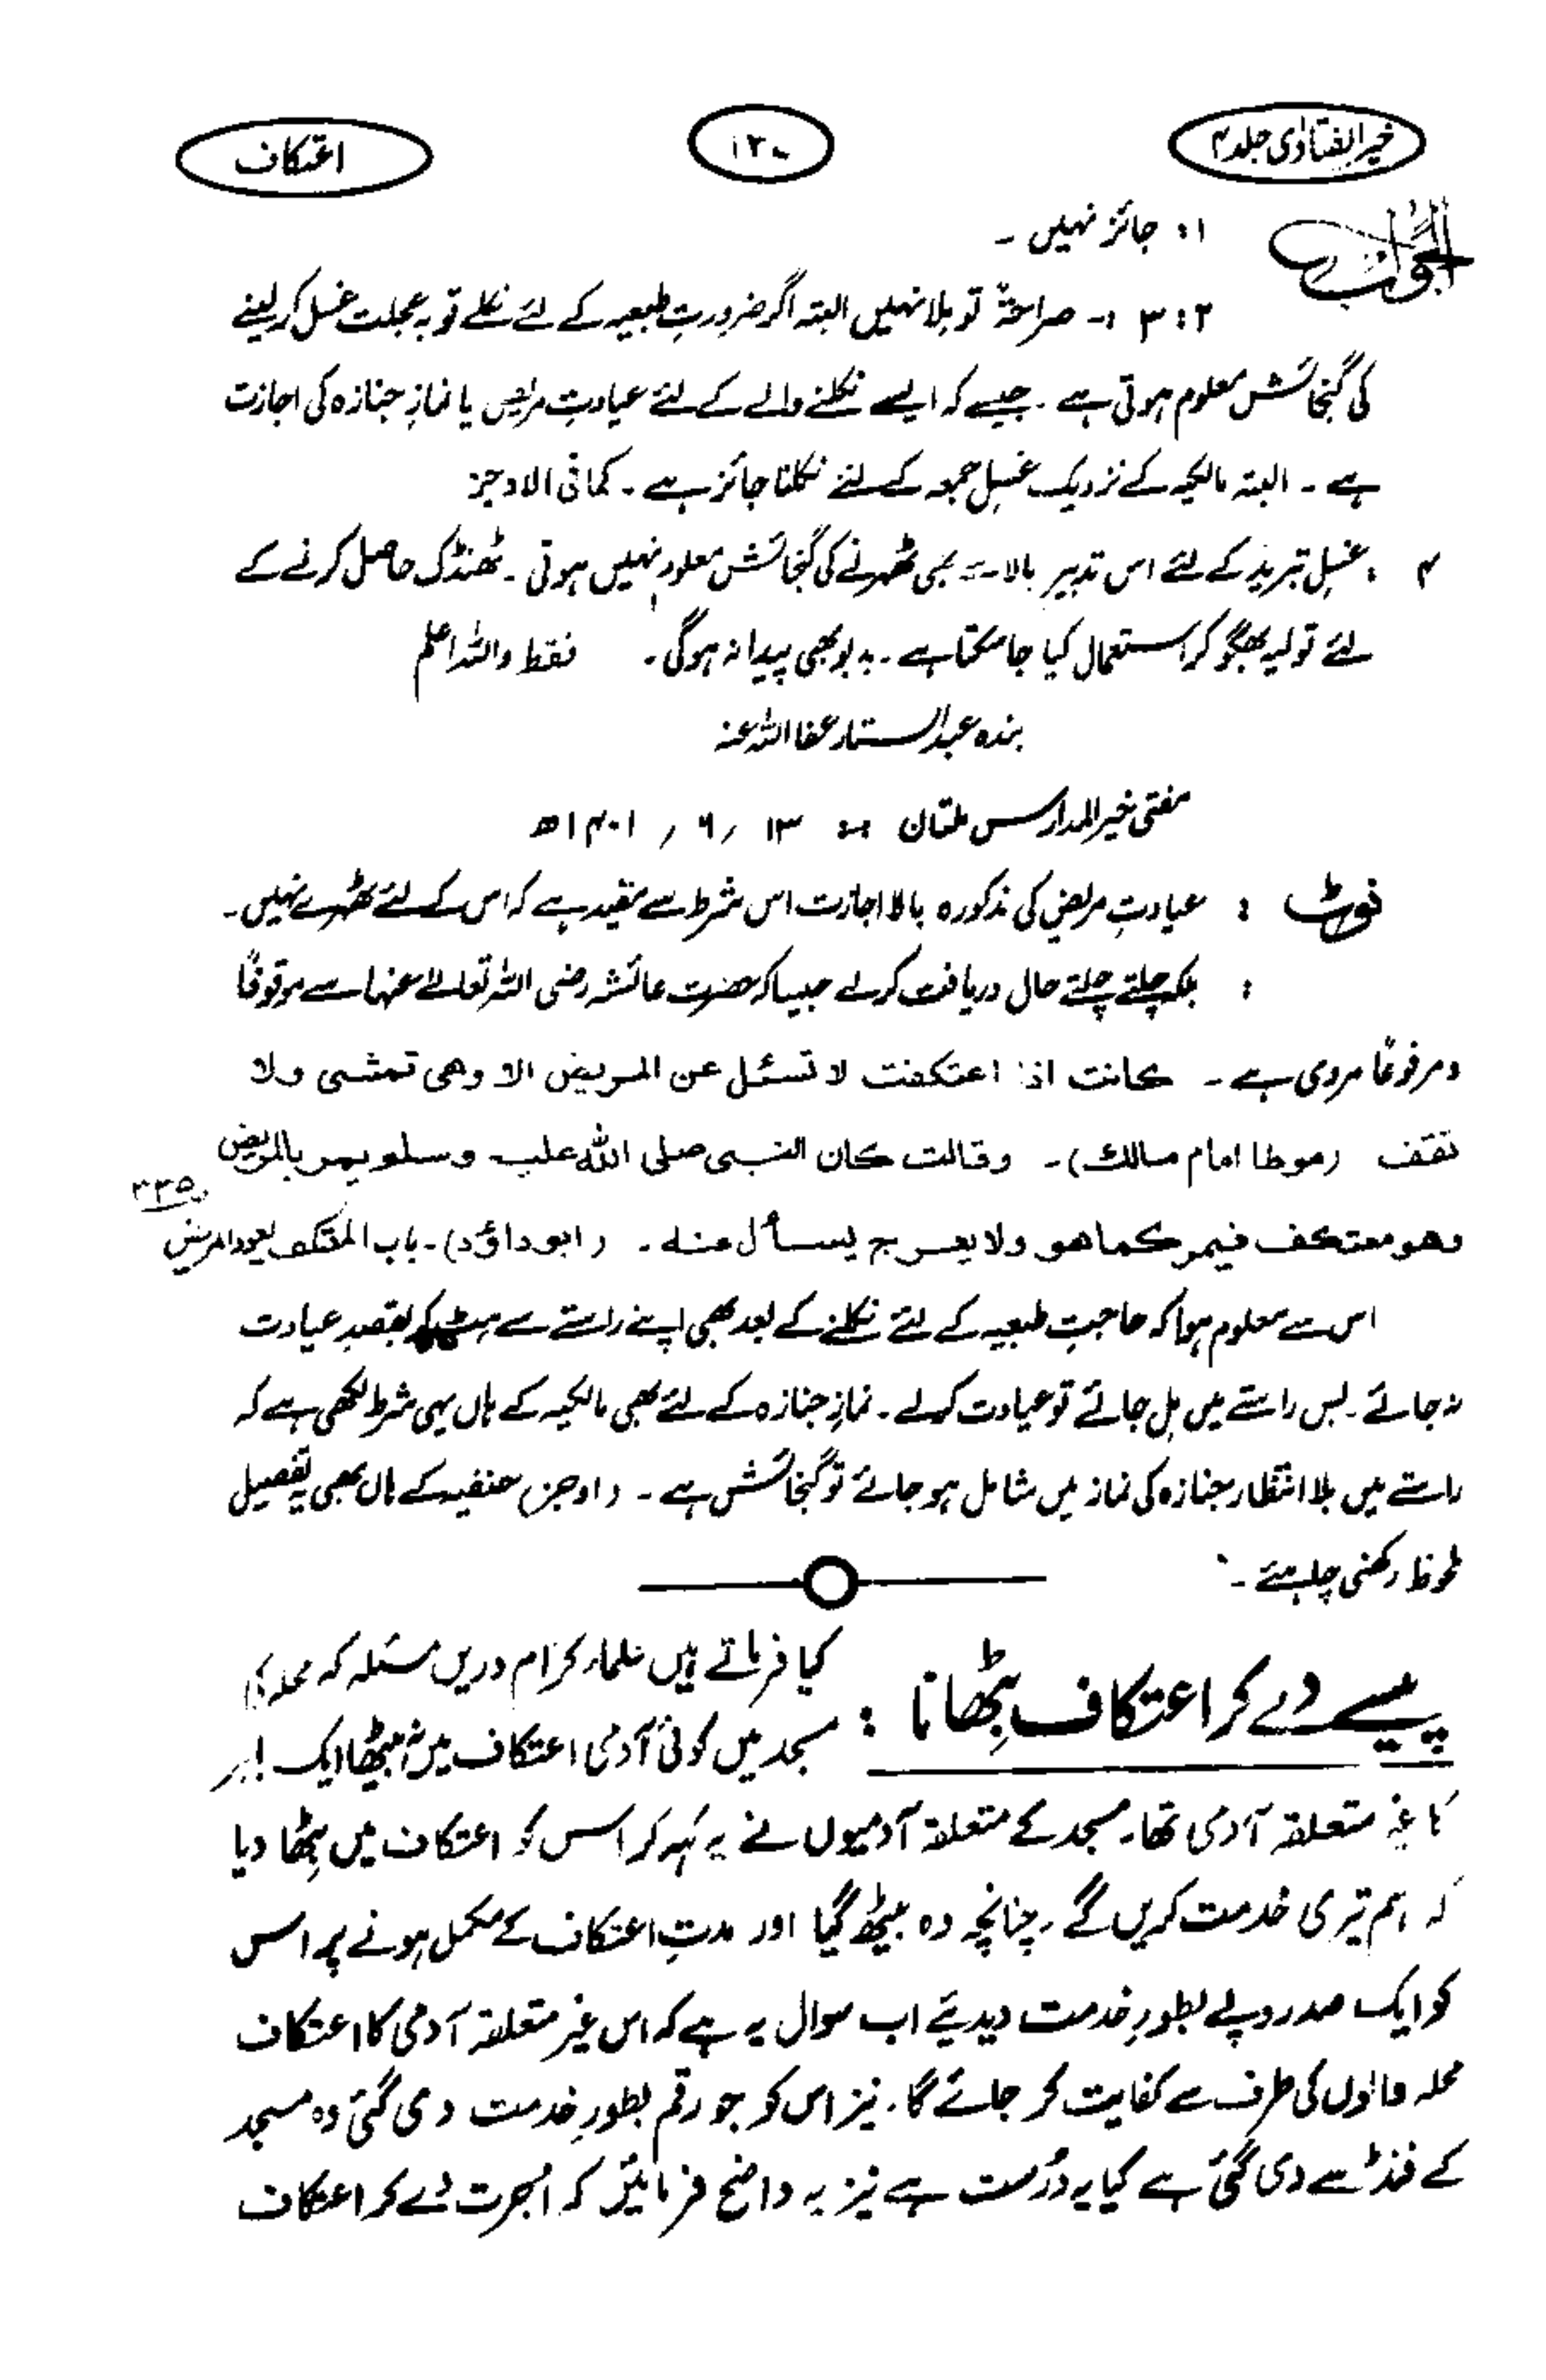 خیر الفتاوٰی جلد ۴
۱۳۰
اعتکاف
الجواب
۱: جائز نہیں ۔
۲، ۳ :۔ صراحۃً تو بلا نہیں البتہ اگر ضرورتِ طبعیہ کے لئے نکلے تو بہ عجلت غسل کر لینے
کی گنجائش معلوم ہوتی ہے ۔ جیسے کہ ایسے نکلنے والے کے لئے عیادتِ مریض یا نمازِ جنازہ کی اجازت
ہے ۔ البتہ مالکیہ کے نزدیک غسلِ جمعہ کے لئے نکلنا جائز ہے ۔ کما فی الاوجز
۴ : غسلِ تبرید کے لئے اس تدبیر بالا سے بھی ٹھہرنے کی گنجائش معلوم نہیں ہوتی ۔ ٹھنڈک حاصل کرنے کے
لئے تولیہ بھگو کر استعمال کیا جا سکتا ہے ۔ بدبو بھی پیدا نہ ہوگی ۔ فقط واللہ اعلم
بندہ عبدالستار عفا اللہ عنہ
مفتی خیر المدارس ملتان ۱۳ / ۶ / ۱۴۰۱ھ
نوٹ : عیادتِ مریض کی مذکورہ بالا اجازت اس شرط سے مقید ہے کہ اس کے لئے ٹھہرے نہیں ۔
: بلکہ چلتے چلتے حال دریافت کرلے جیسا کہ حضرت عائشہ رضی اللہ تعالٰے عنہا سے موقوفًا
و مرفوعًا مروی ہے ۔ کانت اذا اعتکفت لا تسئل عن المریض الا وھی تمشی ولا
تقف (موطا امام مالک) ۔ وقالت کان النبی صلی اللہ علیہ وسلم یمر بالمریض
وھو معتکف فیمر کما ھو ولا یعرج یسأل عنہ ۔ (ابو داؤد) ۔ باب المعتکف یعود المریض
ص۳۳۵
اس سے معلوم ہوا کہ حاجتِ طبعیہ کے لئے نکلنے کے بعد بھی اپنے راستے سے ہٹ کر بقصدِ عیادت
نہ جائے ۔ بس راستے میں مِل جائے تو عیادت کرلے ۔ نمازِ جنازہ کے لئے بھی مالکیہ کے ہاں یہی شرط لکھی ہے کہ
راستے میں بلا انتظار جنازہ کی نماز میں شامل ہو جائے تو گنجائش ہے ۔ (اوجز) حنفیہ کے ہاں بھی یہ تفصیل
ملحوظ رکھنی چاہئے ۔
پیسے دے کر اعتکاف بِٹھانا :
کیا فرماتے ہیں علماء کرام دریں مسئلہ کہ محلہ کی
مسجد میں کوئی آدمی اعتکاف میں نہ بیٹھا ایک باہر
کا غیر متعلقہ آدمی تھا۔ مسجد کے متعلقہ آدمیوں نے یہ کہہ کر اس کو اعتکاف میں بِٹھا دیا
کہ ہم تیری خدمت کریں گے ۔ چنانچہ وہ بیٹھ گیا اور مدتِ اعتکاف کے مکمل ہونے پر اس
کو ایک صد روپے بطورِ خدمت دیدیئے اب سوال یہ ہے کہ اس غیر متعلقہ آدمی کا اعتکاف
محلہ والوں کی طرف سے کفایت کر جائے گا ۔ نیز اس کو جو رقم بطورِ خدمت دی گئی وہ مسجد
کے فنڈ سے دی گئی ہے کیا یہ درُست ہے نیز یہ واضح فرمائیں کہ اُجرت دے کر اعتکاف